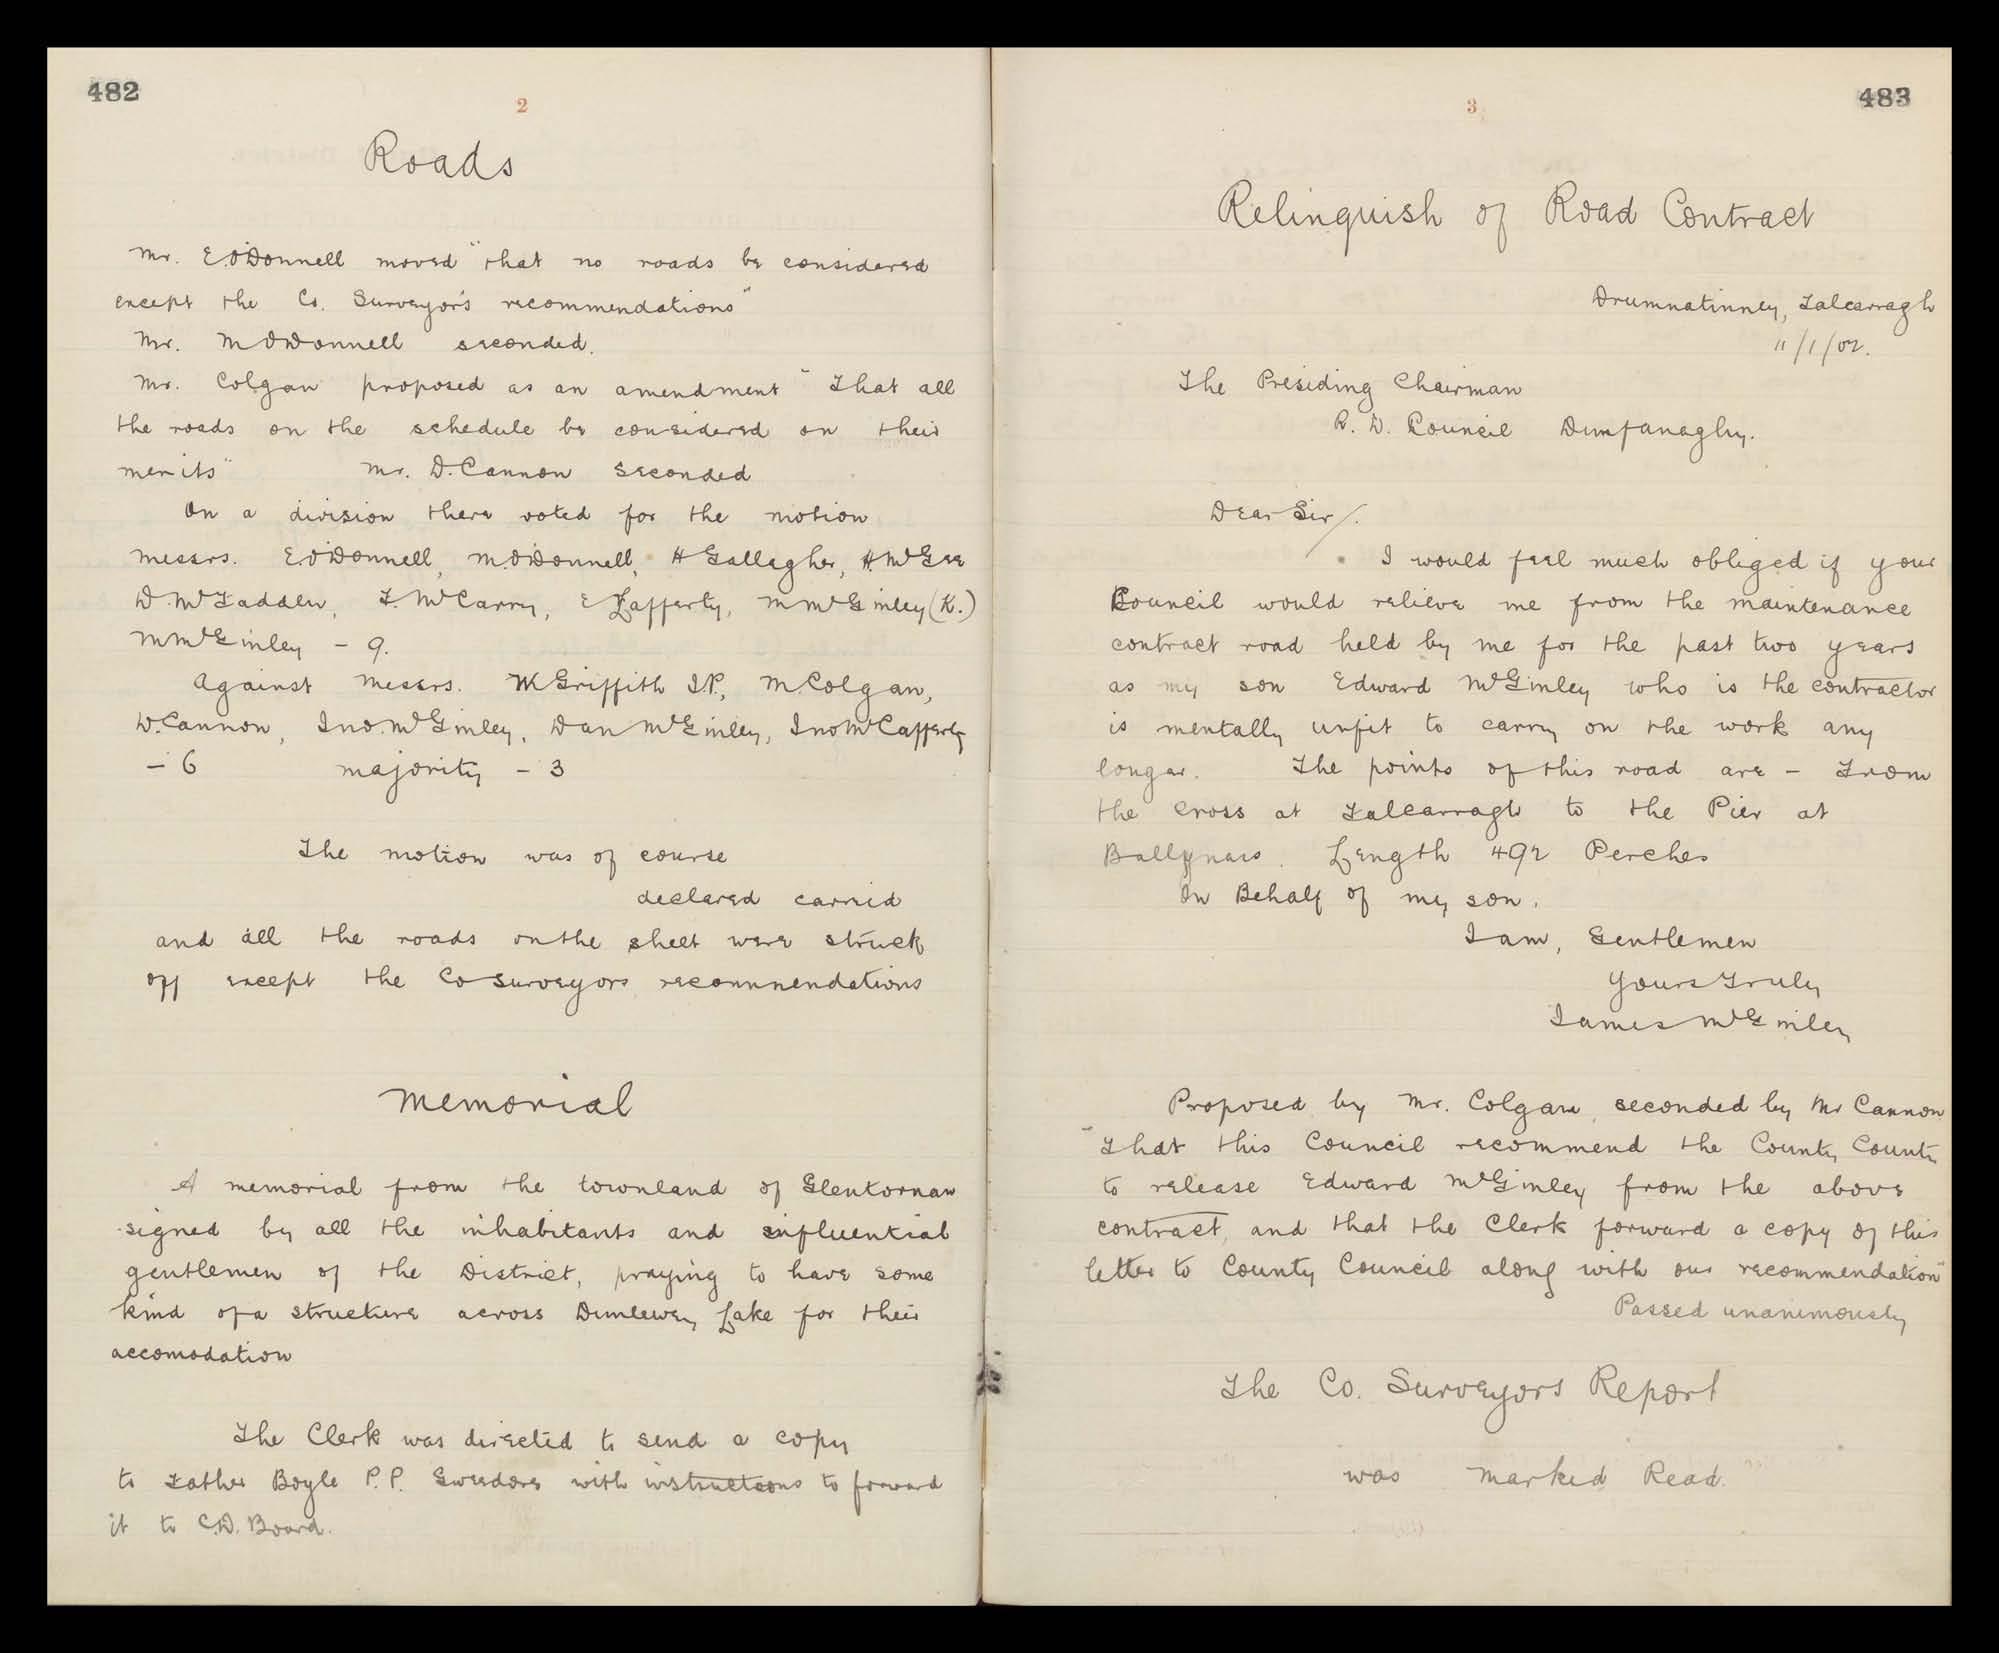 482
2
Roads
Mr. E. O'Donnell moved "that no roads be considered
except the Co. Surveyor's recommendations"
Mr. M O'Donnell seconded.
Mr. Colgan proposed as an amendment "That all
the roads on the schedule be considered on their
merits" Mr. D. Cannon seconded
On a division there voted for the motion
Messrs. E. O'Donnell, M. O'Donnell, H Gallagher, H. McGee
D. McFadden, F. McCarry, E Lafferty, M McGinley (K.)
M McGinley - 9.
Against Messrs. W Griffith J.P., M. Colgan,
D. Cannon, Jno. McGinley, Dan McGinley, Jno McCafferty
- 6 majority - 3
The motion was of course
declared carreid
and all the roads on the sheet were struck
off except the Co Surveyors recommendations
Memorial
A memorial from the townland of Glentornan
signed by all the inhabitants and influential
gentlemen of the District, praying to have some
kind of a structure across Dunlewey Lake for their
accomodation
The Clerk was directed to send a copy
to Father Boyle P.P. Gweedore with instructions to forward
it to C.D. Board.
483
3
Relinquish of Road Contract
Drumnatinney, Falcarragh
11/1/02.
The Presiding Chairman
R. D. Council Dunfanaghy.
Dear Sir/.
I would feel much obliged if your
Council would relieve me from the maintenance
contract road held by me for the past two years
as my son Edward McGinley who is the contractor
is mentally unfit to carry on the work any
longer. The points of this road are - From
the cross at Falcarragh to the Pier at
Ballyness. Length 492 Perches
On Behalf of my son.
I am, Gentlemen
Yours Truly
James McGinley
Proposed by Mr. Colgan seconded by Mr Cannon
"That this Council recommend the County County
to release Edward McGinley from the above
contract, and that the Clerk forward a copy of this
letter to County Council along with our recommendation"
Passed unanimously
The Co. Surveyors Report
was marked Read.